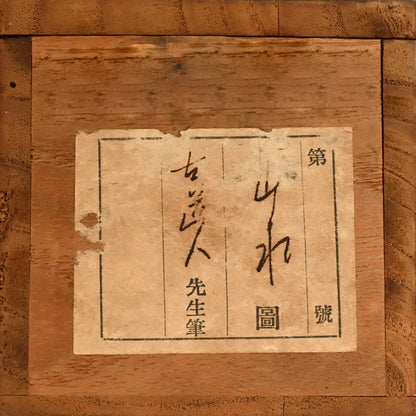 第　號
山水圖
古道人先生筆